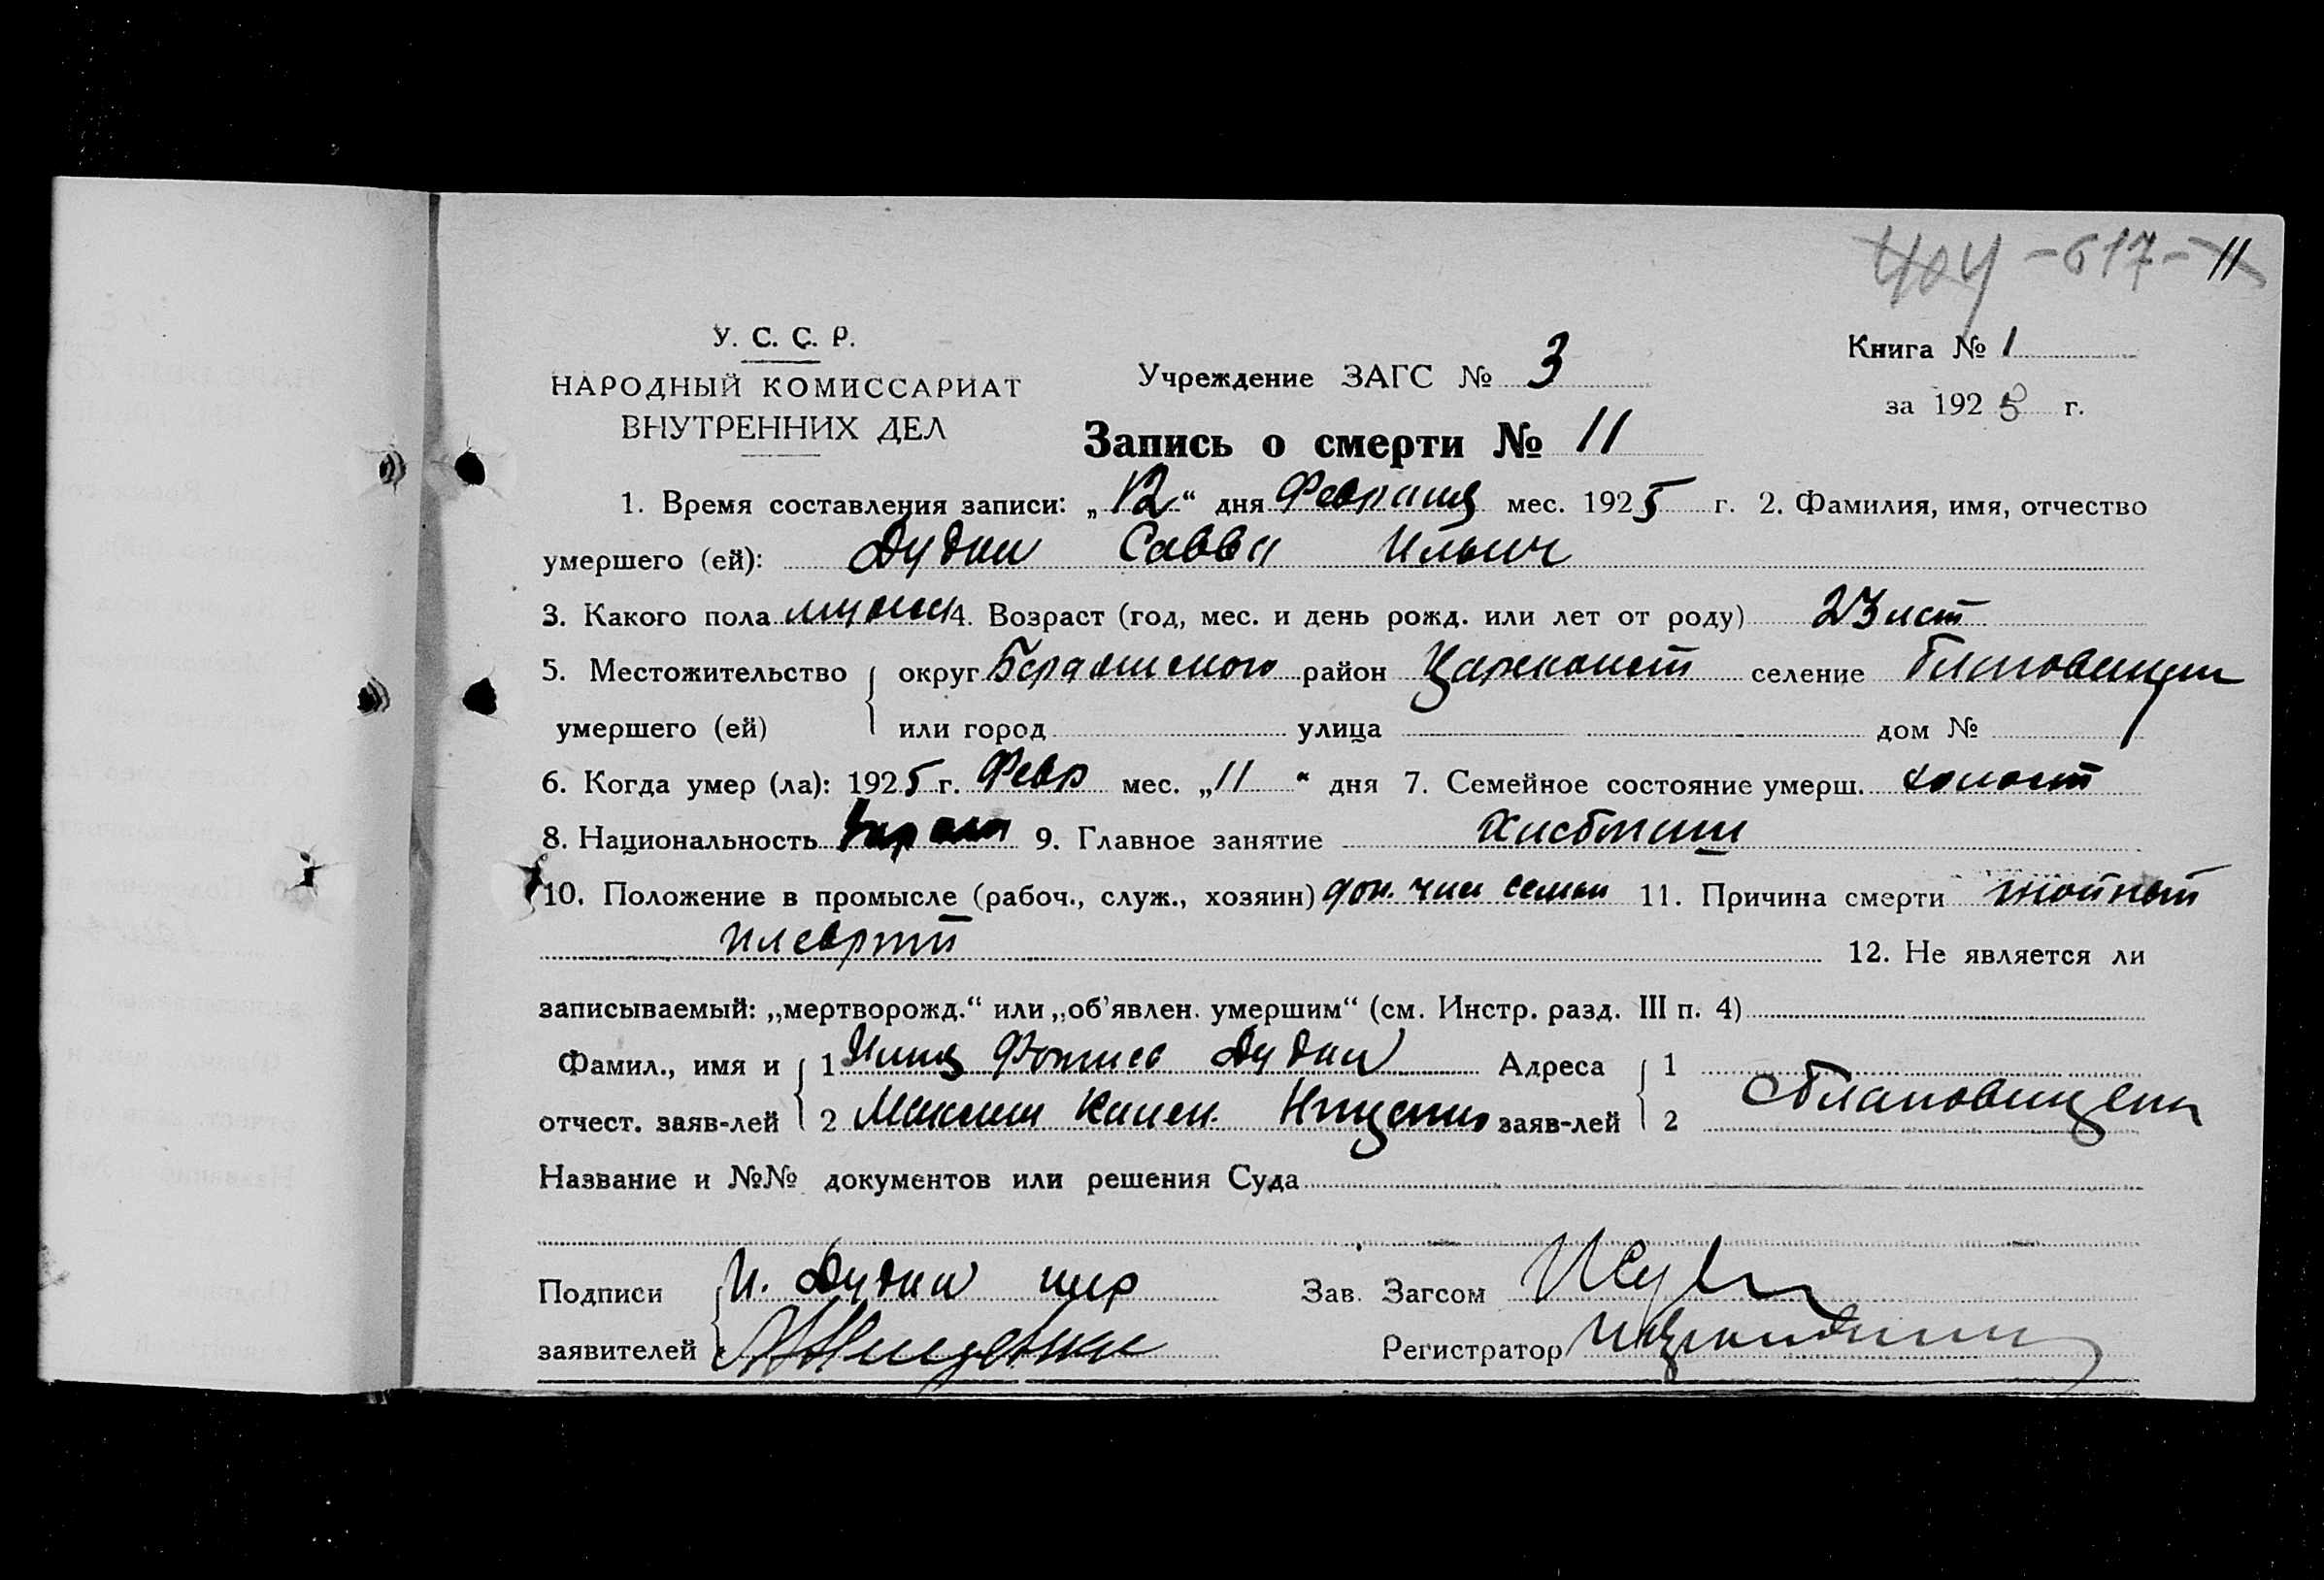 404 - 617 - 11
У. С. С. Р.
НАРОДНЫЙ КОМИССАРИАТ
ВНУТРЕННИХ ДЕЛ
Учреждение ЗАГС № 3
Книга № 1
за 1925 г.
Запись о смерти № 11
1. Время составления записи: „12“ дня Февраля мес. 1925 г. 2. Фамилия, имя, отчество
умершего (ей): Дудин Савва Ильич
3. Какого пола мужск 4. Возраст (год, мес. и день рожд. или лет от роду) 23 лет
5. Местожительство округ Бердянского район Цареконст селение
умершего (ей) или город улица дом №
6. Когда умер (ла): 1925 г. Февр мес. „11“ дня 7. Семейное состояние умерш. холост
8. Национальность 9. Главное занятие
10. Положение в промысле (рабоч., служ., хозяин) член семьи 11. Причина смерти гнойный
плеврит 12. Не является ли
записываемый: „мертворожд.“ или „об'явлен. умершим“ (см. Инстр. разд. III п. 4)
Фамил., имя и 1 Илья Дудин Адреса 1
отчест. заяв-лей 2 Максим заяв-лей 2
Название и №№ документов или решения Суда
Подписи И. Дудин Зав. Загсом
заявителей Регистратор